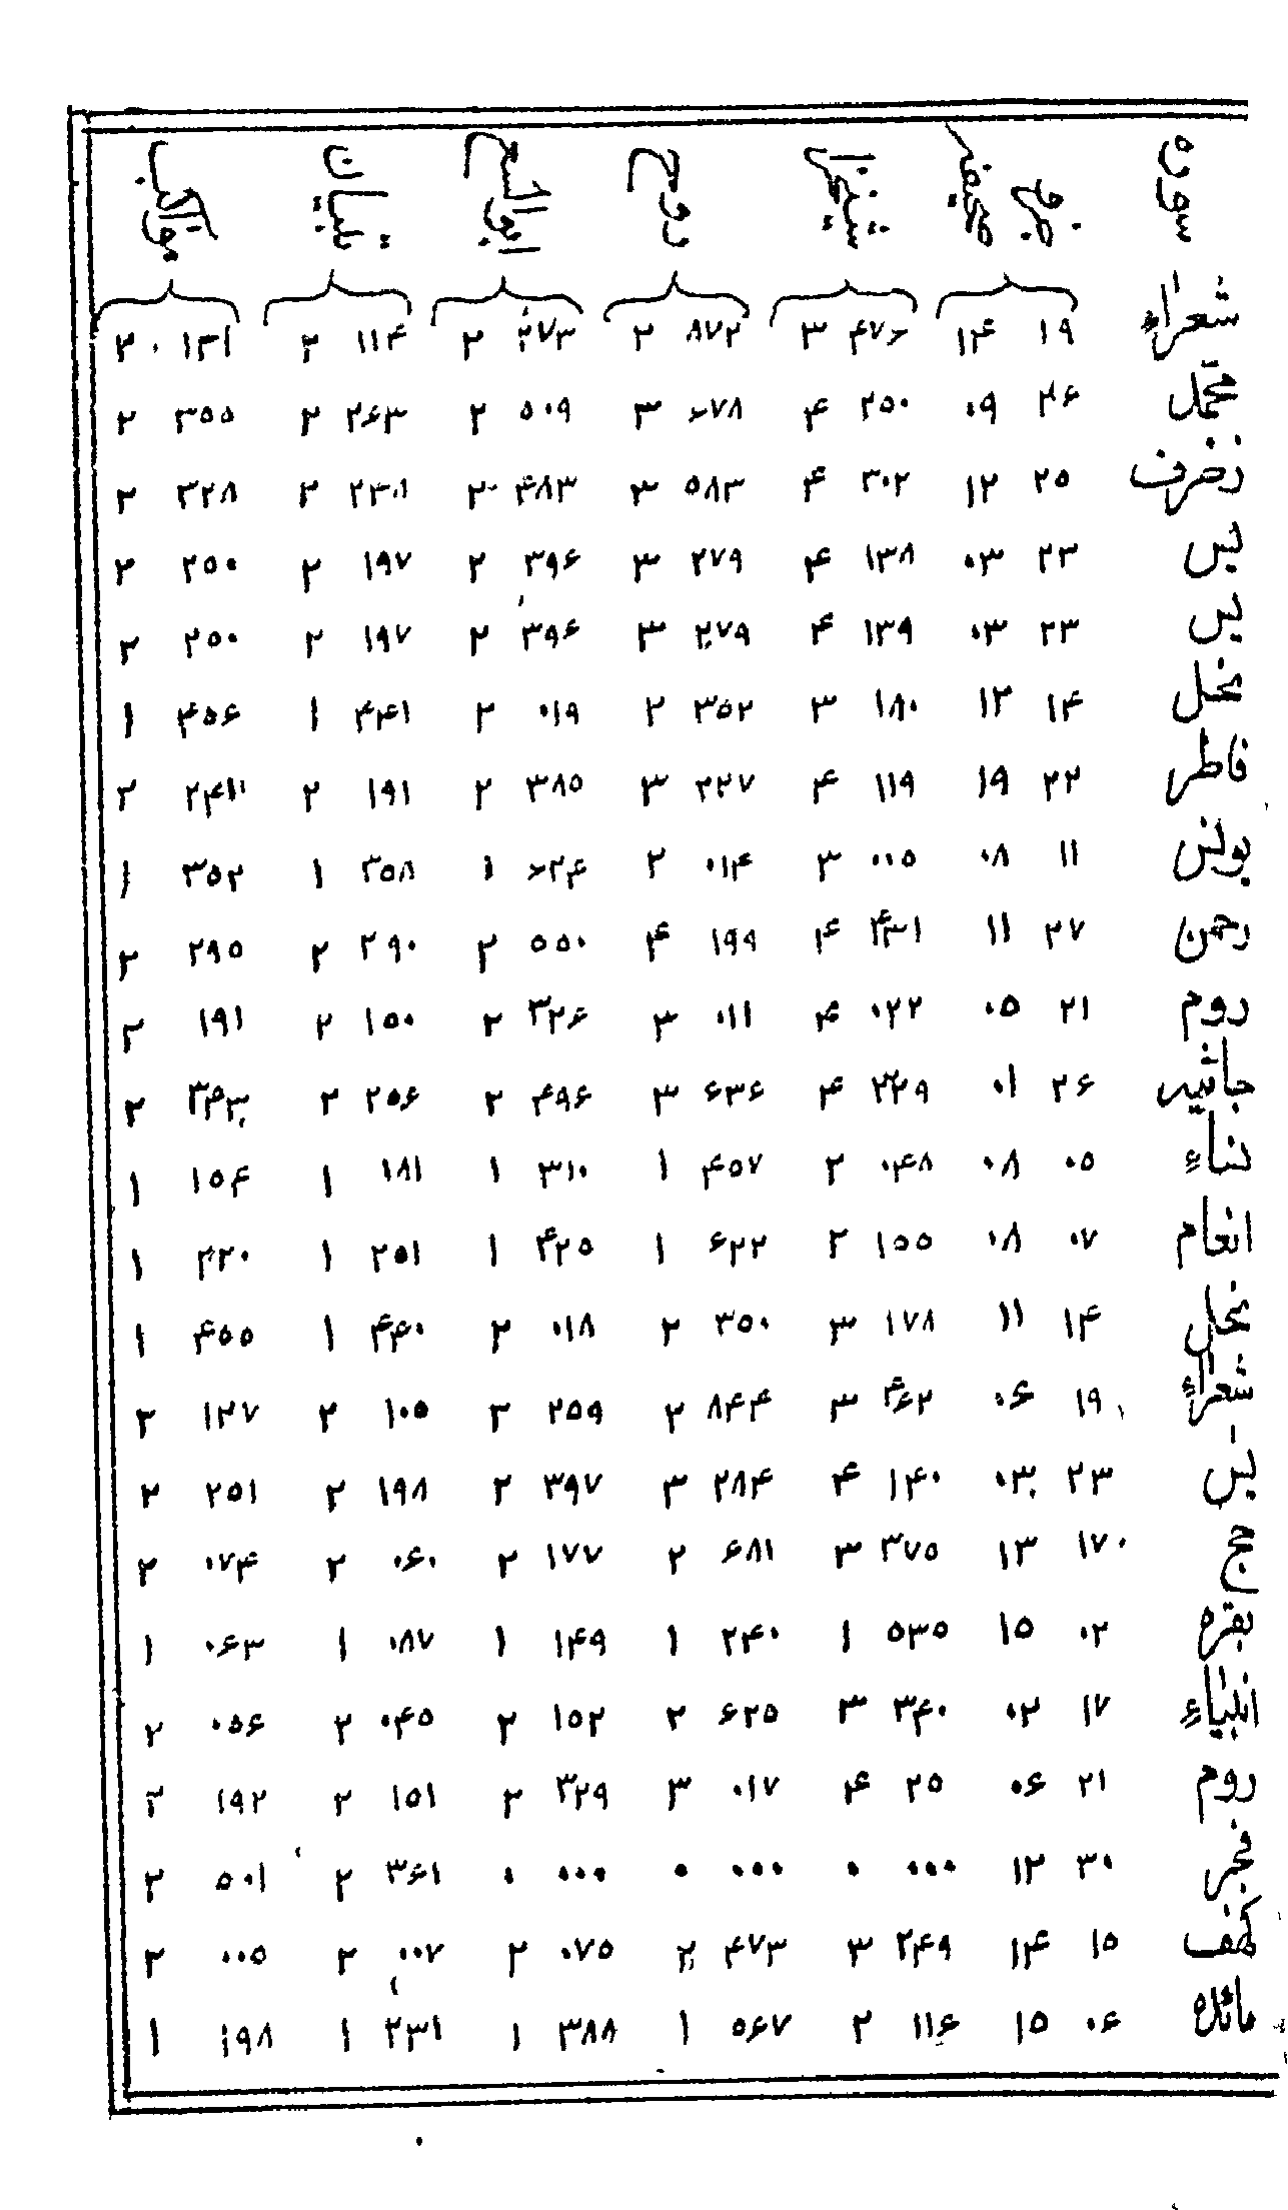 سوره جزء صحیفه شیخنا روح ابوالفتوح تبیان مواهب
شعراء ۱۹ ۱۴ ۴۷۶ ۳ ۸۷۲ ۲ ۲۷۳ ۲ ۱۱۴ ۲ ۱۳۱ ۲
محمّد ۲۶ ۰۹ ۲۵۰ ۴ ۶۷۸ ۳ ۵۰۹ ۲ ۲۶۳ ۲ ۳۵۵ ۲
زخرف ۲۵ ۱۲ ۳۰۲ ۴ ۵۸۳ ۳ ۴۸۳ ۲ ۲۳۸ ۲ ۳۲۸ ۲
یس ۲۳ ۰۳ ۱۳۸ ۴ ۲۷۹ ۳ ۳۹۶ ۲ ۱۹۷ ۲ ۲۵۰ ۲
یس ۲۳ ۰۳ ۱۳۹ ۴ ۲۷۹ ۳ ۳۹۶ ۲ ۱۹۷ ۲ ۲۵۰ ۲
نحل ۱۴ ۱۲ ۱۸۰ ۳ ۳۵۲ ۲ ۰۱۹ ۲ ۴۴۱ ۱ ۴۵۶ ۱
فاطر ۲۲ ۱۹ ۱۱۹ ۴ ۲۲۷ ۳ ۳۸۵ ۲ ۱۹۱ ۲ ۲۴۱ ۲
یونس ۱۱ ۰۸ ۰۰۵ ۳ ۰۱۴ ۲ ۶۲۴ ۱ ۳۵۸ ۱ ۳۵۲ ۱
رحمن ۲۷ ۱۱ ۴۳۱ ۴ ۱۹۹ ۴ ۵۵۰ ۲ ۲۹۰ ۲ ۲۹۵ ۲
روم ۲۱ ۰۵ ۰۲۲ ۴ ۰۱۱ ۳ ۳۲۶ ۲ ۱۵۰ ۲ ۱۹۱ ۲
جاثیه ۲۶ ۰۱ ۲۲۹ ۴ ۶۳۶ ۳ ۴۹۶ ۲ ۲۵۶ ۲ ۳۴۳ ۲
نساء ۰۵ ۰۸ ۰۴۸ ۲ ۴۵۷ ۱ ۳۱۰ ۱ ۱۸۱ ۱ ۱۵۴ ۱
انعام ۰۷ ۰۸ ۱۵۵ ۲ ۶۲۲ ۱ ۴۲۵ ۱ ۲۵۱ ۱ ۲۲۰ ۱
نحل ۱۴ ۱۱ ۱۷۸ ۳ ۳۵۰ ۲ ۰۱۸ ۲ ۴۴۰ ۱ ۴۵۵ ۱
شعراء ۱۹ ۰۶ ۴۶۲ ۳ ۸۴۴ ۲ ۲۵۹ ۲ ۱۰۵ ۲ ۱۲۷ ۲
یس ۲۳ ۰۳ ۱۴۰ ۴ ۲۸۴ ۳ ۳۹۷ ۲ ۱۹۸ ۲ ۲۵۱ ۲
حج ۱۷ ۱۳ ۳۷۵ ۳ ۶۸۱ ۲ ۱۷۷ ۲ ۰۶۰ ۲ ۰۷۴ ۲
بقره ۰۲ ۱۵ ۵۳۵ ۱ ۲۴۰ ۱ ۱۴۹ ۱ ۰۸۷ ۱ ۰۶۳ ۱
انبیاء ۱۷ ۰۲ ۳۴۰ ۳ ۶۲۵ ۲ ۱۵۲ ۲ ۰۴۵ ۲ ۰۵۶ ۲
روم ۲۱ ۰۶ ۲۵ ۴ ۰۱۷ ۳ ۳۲۹ ۲ ۱۵۱ ۲ ۱۹۲ ۲
فجر ۳۰ ۱۲ ۰۰۰ ۰ ۰۰۰ ۰ ۰۰۰ ۰ ۳۶۱ ۲ ۵۰۱ ۲
کهف ۱۵ ۱۴ ۲۴۹ ۳ ۴۷۳ ۲ ۰۷۵ ۲ ۰۰۷ ۲ ۰۰۵ ۲
مائده ۰۶ ۱۵ ۱۱۶ ۲ ۵۶۷ ۱ ۳۸۸ ۱ ۲۳۱ ۱ ۱۹۸ ۱